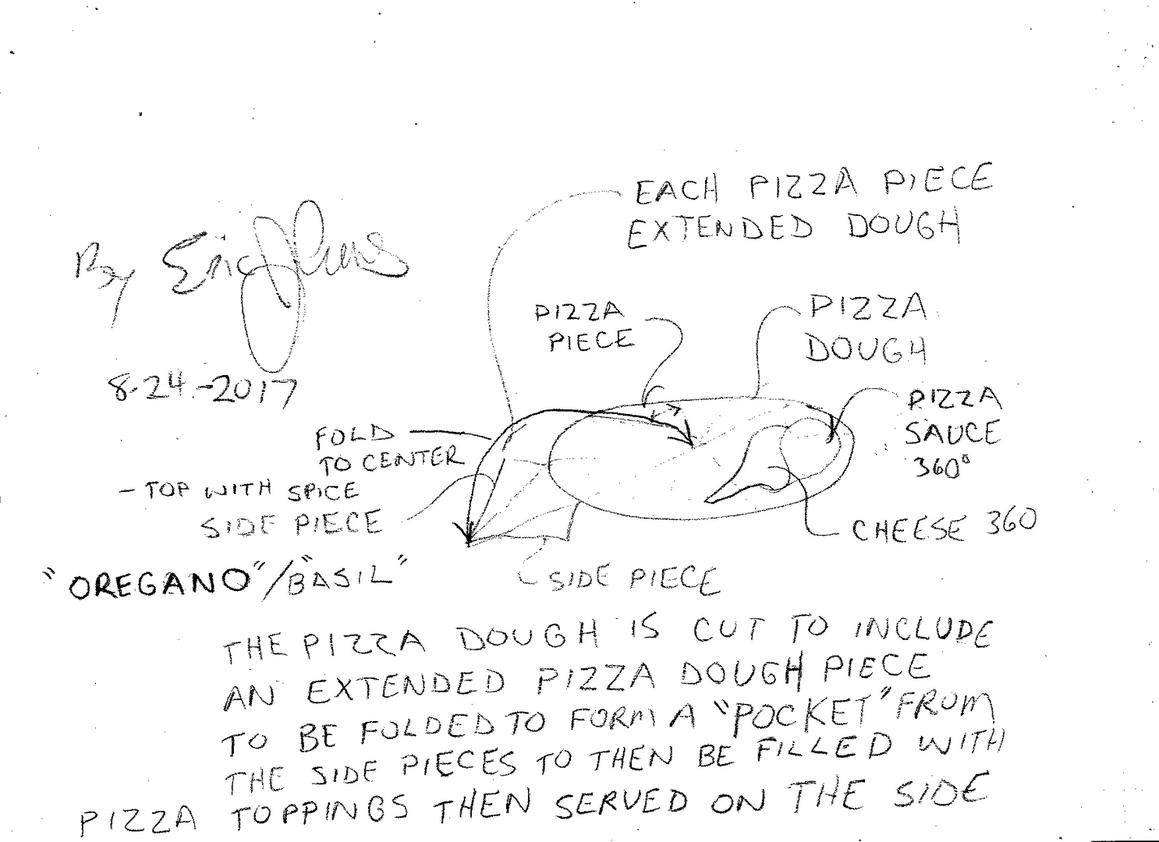 EACH PIZZA PIECE
EXTENDED DOUGH
By Eric
8-24-2017
PIZZA
PIECE
PIZZA
DOUGH
PIZZA
SAUCE
360°
FOLD
TO CENTER
- TOP WITH SPICE
SIDE PIECE
"OREGANO"/"BASIL"
CHEESE 360
SIDE PIECE
THE PIZZA DOUGH IS CUT TO INCLUDE
AN EXTENDED PIZZA DOUGH PIECE
TO BE FOLDED TO FORM A "POCKET" FROM
THE SIDE PIECES TO THEN BE FILLED WITH
PIZZA TOPPINGS THEN SERVED ON THE SIDE